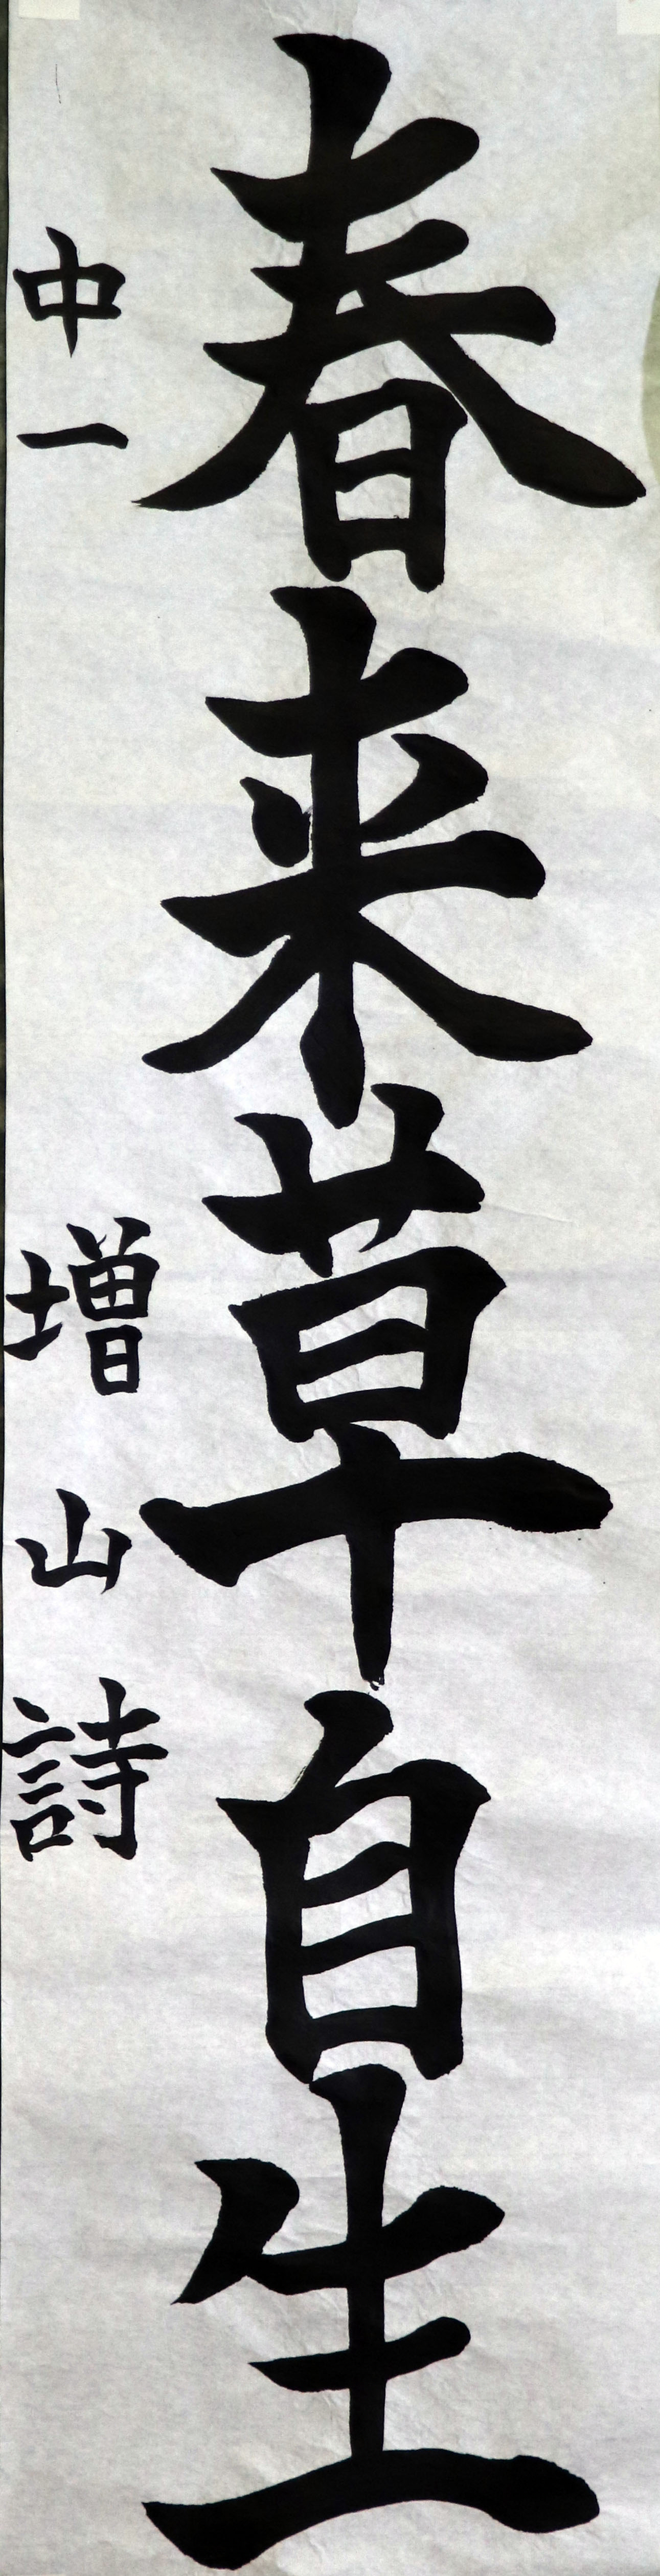 春来草自生
中一 増山詩